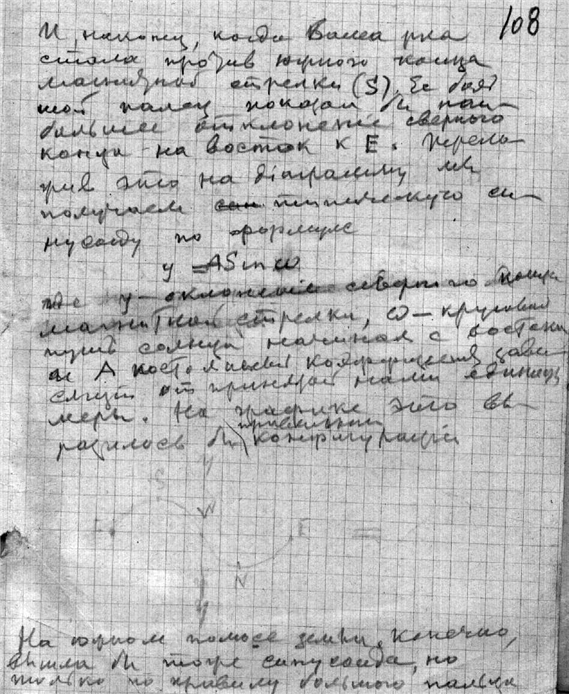 108
И наконец, когда Ваша рука
стала против южного конца
магнитной стрелки (S). Ее боль
шой палец показал бы наи-
большее отклонение северного
конца на восток к E.
это на діаграмму мы
получаем типическую си-
нусоиду по формуле
y = A Sin ω
где y - отклонение северного конца
магнитной стрелки, ω - круговой
путь солнца начиная с востока
и A постоянный коэффициент, зави
сящий от принятой нами единицы
меры. На графике это вы-
правильной
разилось бы конфигурацией
y
S
W
E
N
y
На южном полюсе земли, конечно,
вышла бы тоже синусоида, но
только по правилу большого пальца